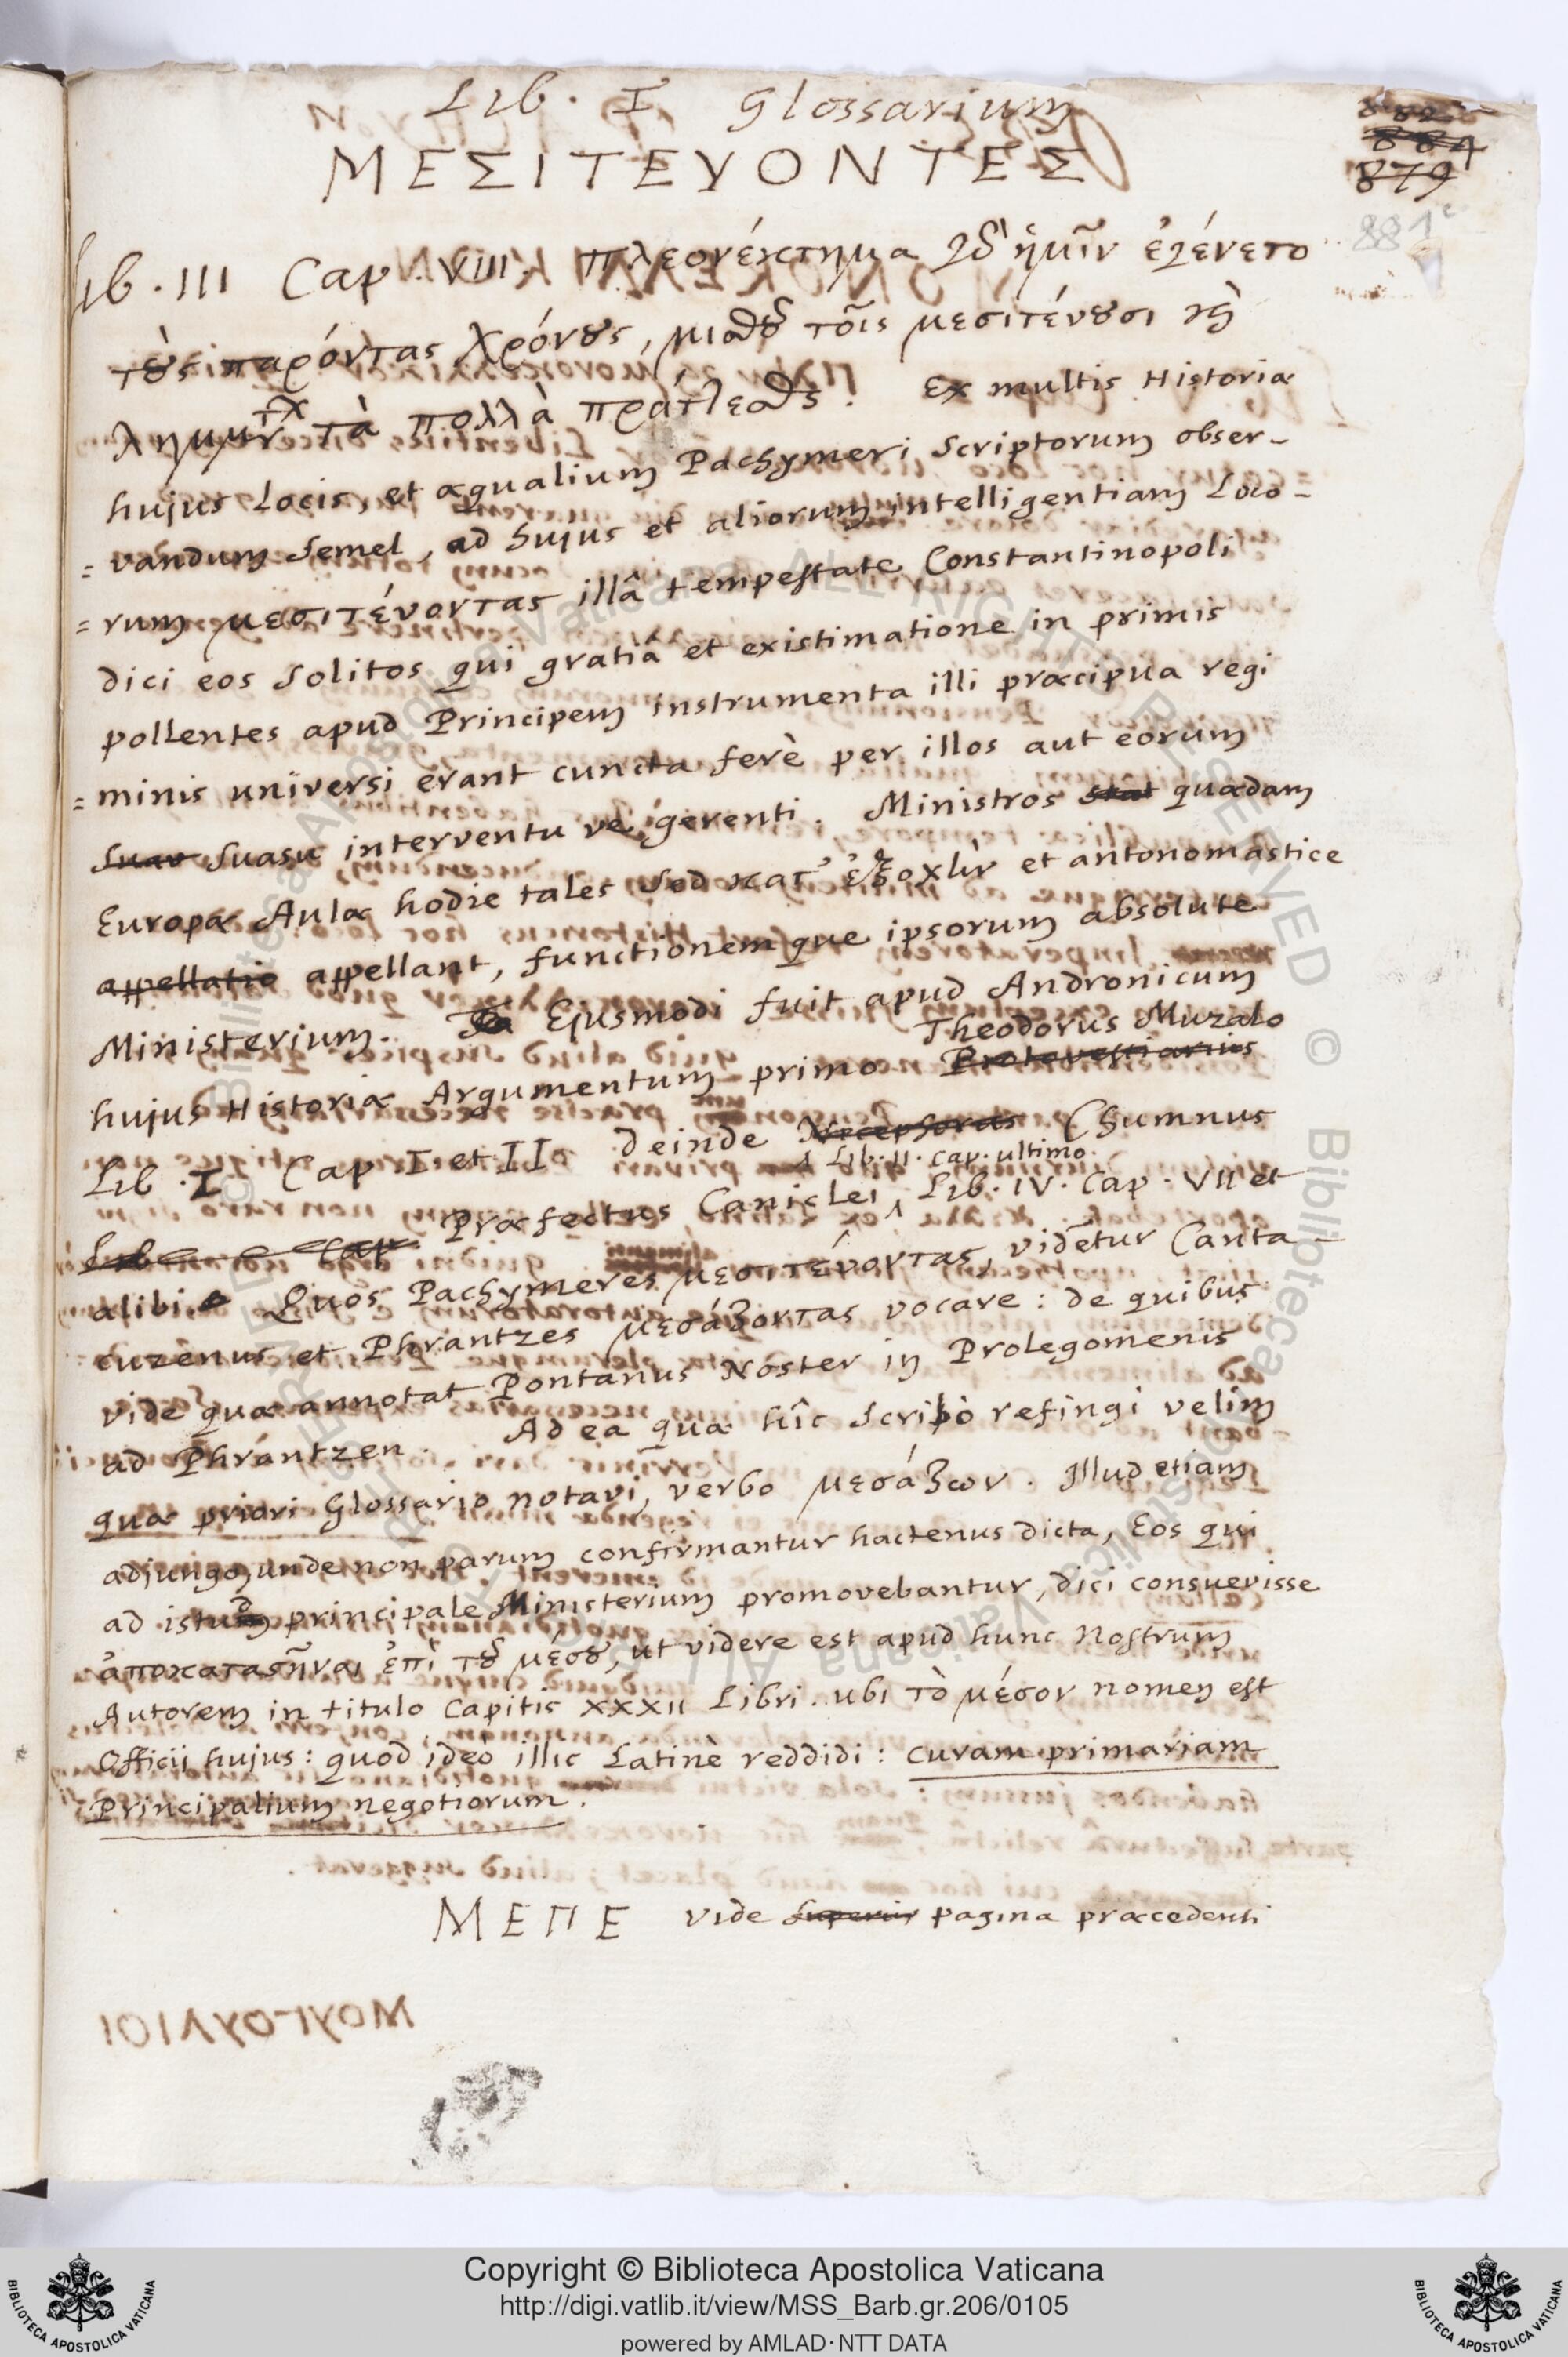 Lib. I Glossarium
ΜΕΣΙΤΕΥΟΝΤΕΣ
882
884
879
881
Lib. III Cap. VIII. πλεονέκτημα γδ ἡμῖν ἐγένετο
τοὺς παρόντας χρόνους, μισθοῦ τοῖς μεσιτεύουσι
τὰ πολλὰ πράττεσθαι. Ex multis Historiæ
hujus Locis, et æqualium Pachymeri Scriptorum obser-
= vandum Semel, ad hujus et aliorum intelligentiam Loco-
= rum μεσιτεύοντας illâ tempestate Constantinopoli
dici eos Solitos qui gratiâ et existimatione in primis
pollentes apud Principem instrumenta illi præcipua regi
= minis universi erant cuncta ferè per illos aut eorum
Suasu interventu ve gerenti. Ministros quædam
Europæ Aulæ hodie tales Sed κατ' ἐξοχὴν et antonomastice
appellatio appellant, functionemque ipsorum absolute
Ministerium. Ejusmodi fuit apud Andronicum
hujus Historiæ Argumentum primo Protovestiarius Theodorus Muzalo
Lib. I Cap I et II deinde Nicephorus Chumnus
Præfectus Caniclei, Lib. II. cap. ultimo. Lib. IV. Cap. VII et
alibi Quos Pachymeres μεσιτεύοντας, videtur Canta-
cuzenus et Phrantzes μεσάζοντας vocare: de quibus
vide quæ annotat Pontanus Noster in Prolegomenis
ad Phrantzen. Ad ea quæ hîc Scribo refingi velim
quæ priori Glossario notavi, verbo μεσάζων. Illud etiam
adjungo, unde non parum confirmantur hactenus dicta, Eos qui
ad istud principale Ministerium promovebantur, dici consuevisse
ἀποκαταστῆναι ἐπὶ τοῦ μέσου, ut videre est apud hunc Nostrum
Autorem in titulo Capitis XXXII Libri. ubi τὸ μέσον nomen est
Officii hujus: quod ideò illic Latinè reddidi: curam primariam
Principalium negotiorum.
ΜΕΠΕ vide superius pagina præcedenti
Copyright © Biblioteca Apostolica Vaticana
http://digi.vatlib.it/view/MSS_Barb.gr.206/0105
powered by AMLAD·NTT DATA